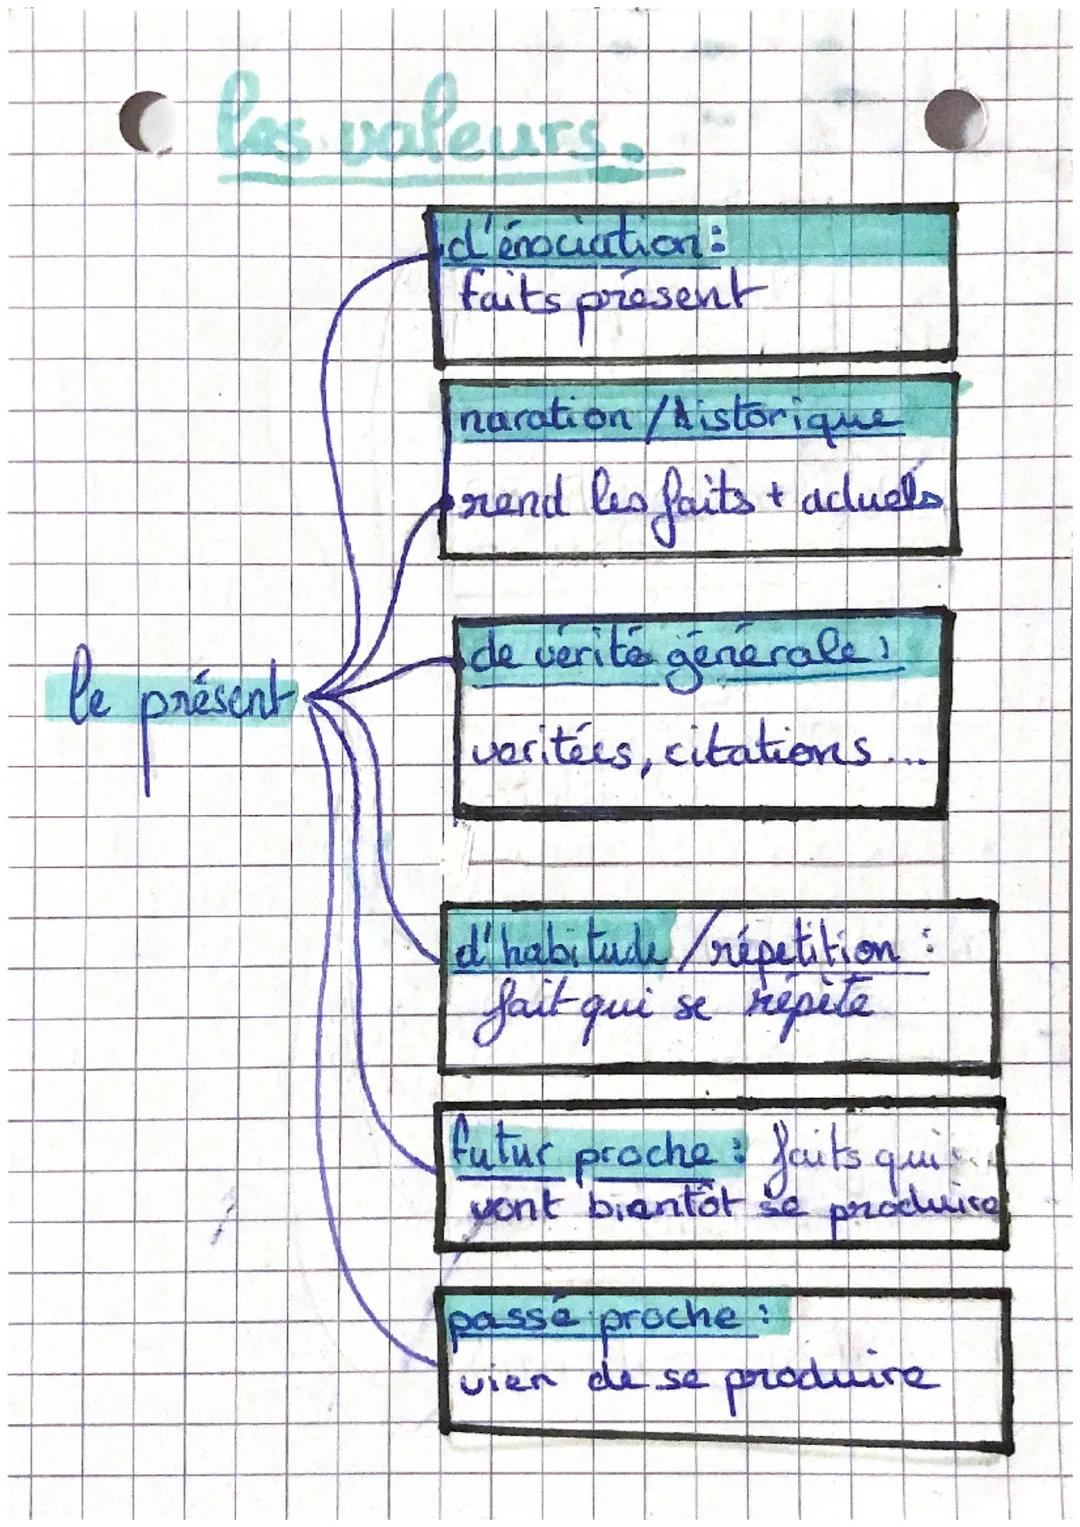 les valeurs.
d'énociation:
faits présent
naration / historique
rend les faits + actuels
le présent
de vérité générale :
veritées, citations...
d'habitude / répetition :
fait qui se répète
futur proche : faits qui
vont bientôt se produire
passé proche :
vien de se produire